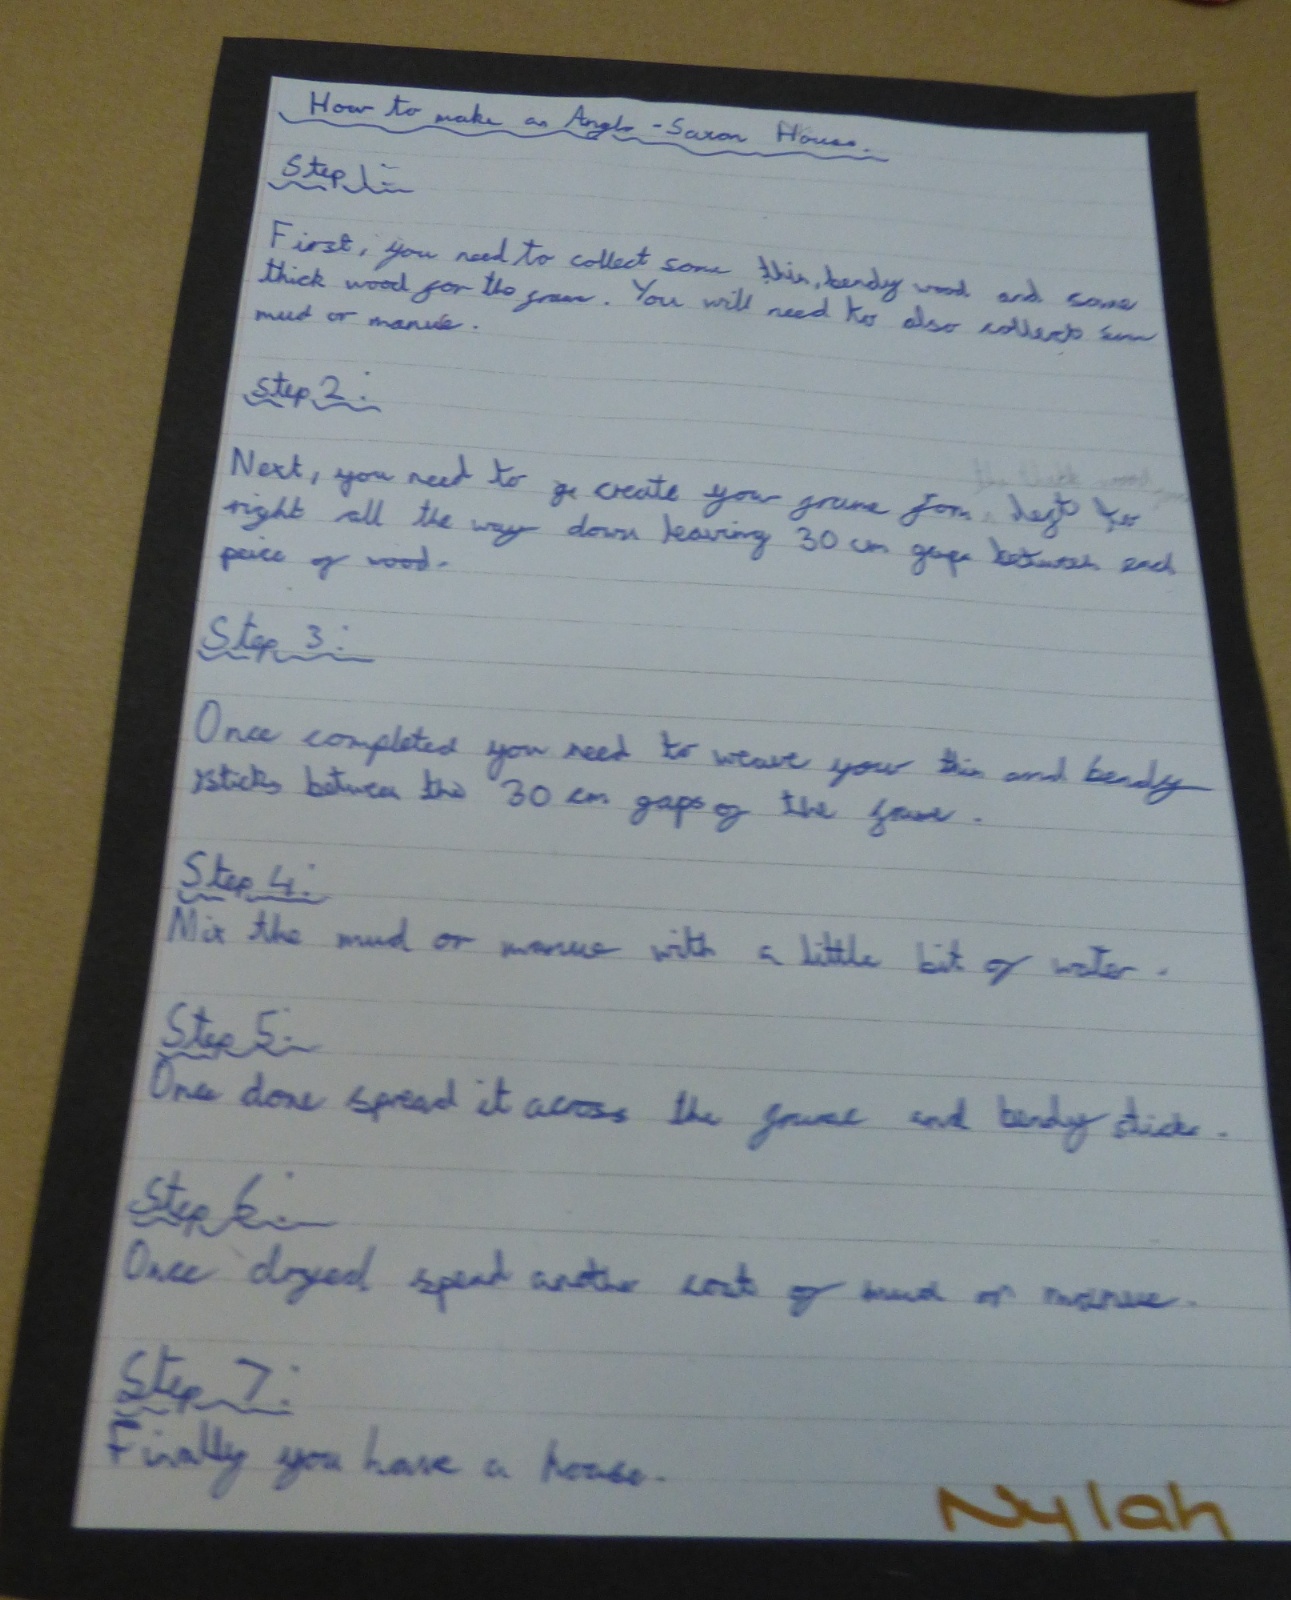 How to make an Anglo-Saxon House.
Step 1:
First, you need to collect some thin, bendy wood and some
thick wood for the frame. You will need to also collect some
mud or manure.
Step 2:
Next, you need to create your frame from left to
right all the way down leaving 30 cm gaps between each
peice of wood.
Step 3:
Once completed you need to weave your thin and bendy
sticks between the 30 cm gaps of the frame.
Step 4:
Mix the mud or manure with a little bit of water.
Step 5:
Once done spread it across the frame and bendy sticks.
Step 6:
Once dryed spead another coat of mud or manure.
Step 7:
Finally you have a house.
Nylah